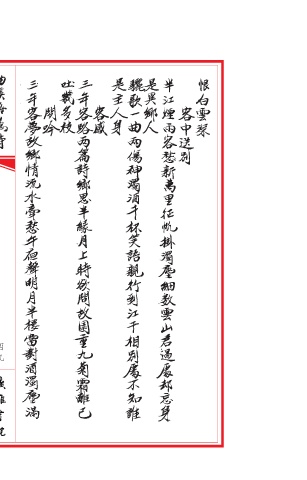 恨白雲深
客中送別
半江煙雨客愁新萬里征帆掛濁塵細數雲山君過處却忘身
是異鄉人
驪歌一曲兩傷神濁酒千杯笑語親行到江干相別處不知誰
是主人身
客感
三年客路兩篇詩鄉思半緣月上時欲問故園重九菊霜離已
吐幾多枝
閑吟
三年客夢故鄉情流水聲愁午夜聲明月半樓當對酒濁塵滿